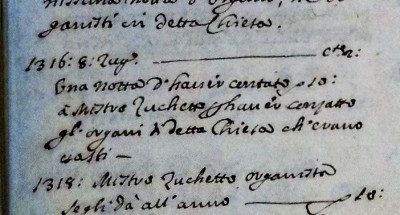 ganisti in detta Chiesa.
1316: 8: Lug.o ——— c.te 2:
Una notta d'haver contato £10:
à Mistro Zuchetto p haver consatto
gl'organi di detta Chiesa ch'erano
vasti —
1318: Mistro Zuchetto organista
segli dà all'anno ——— £10: